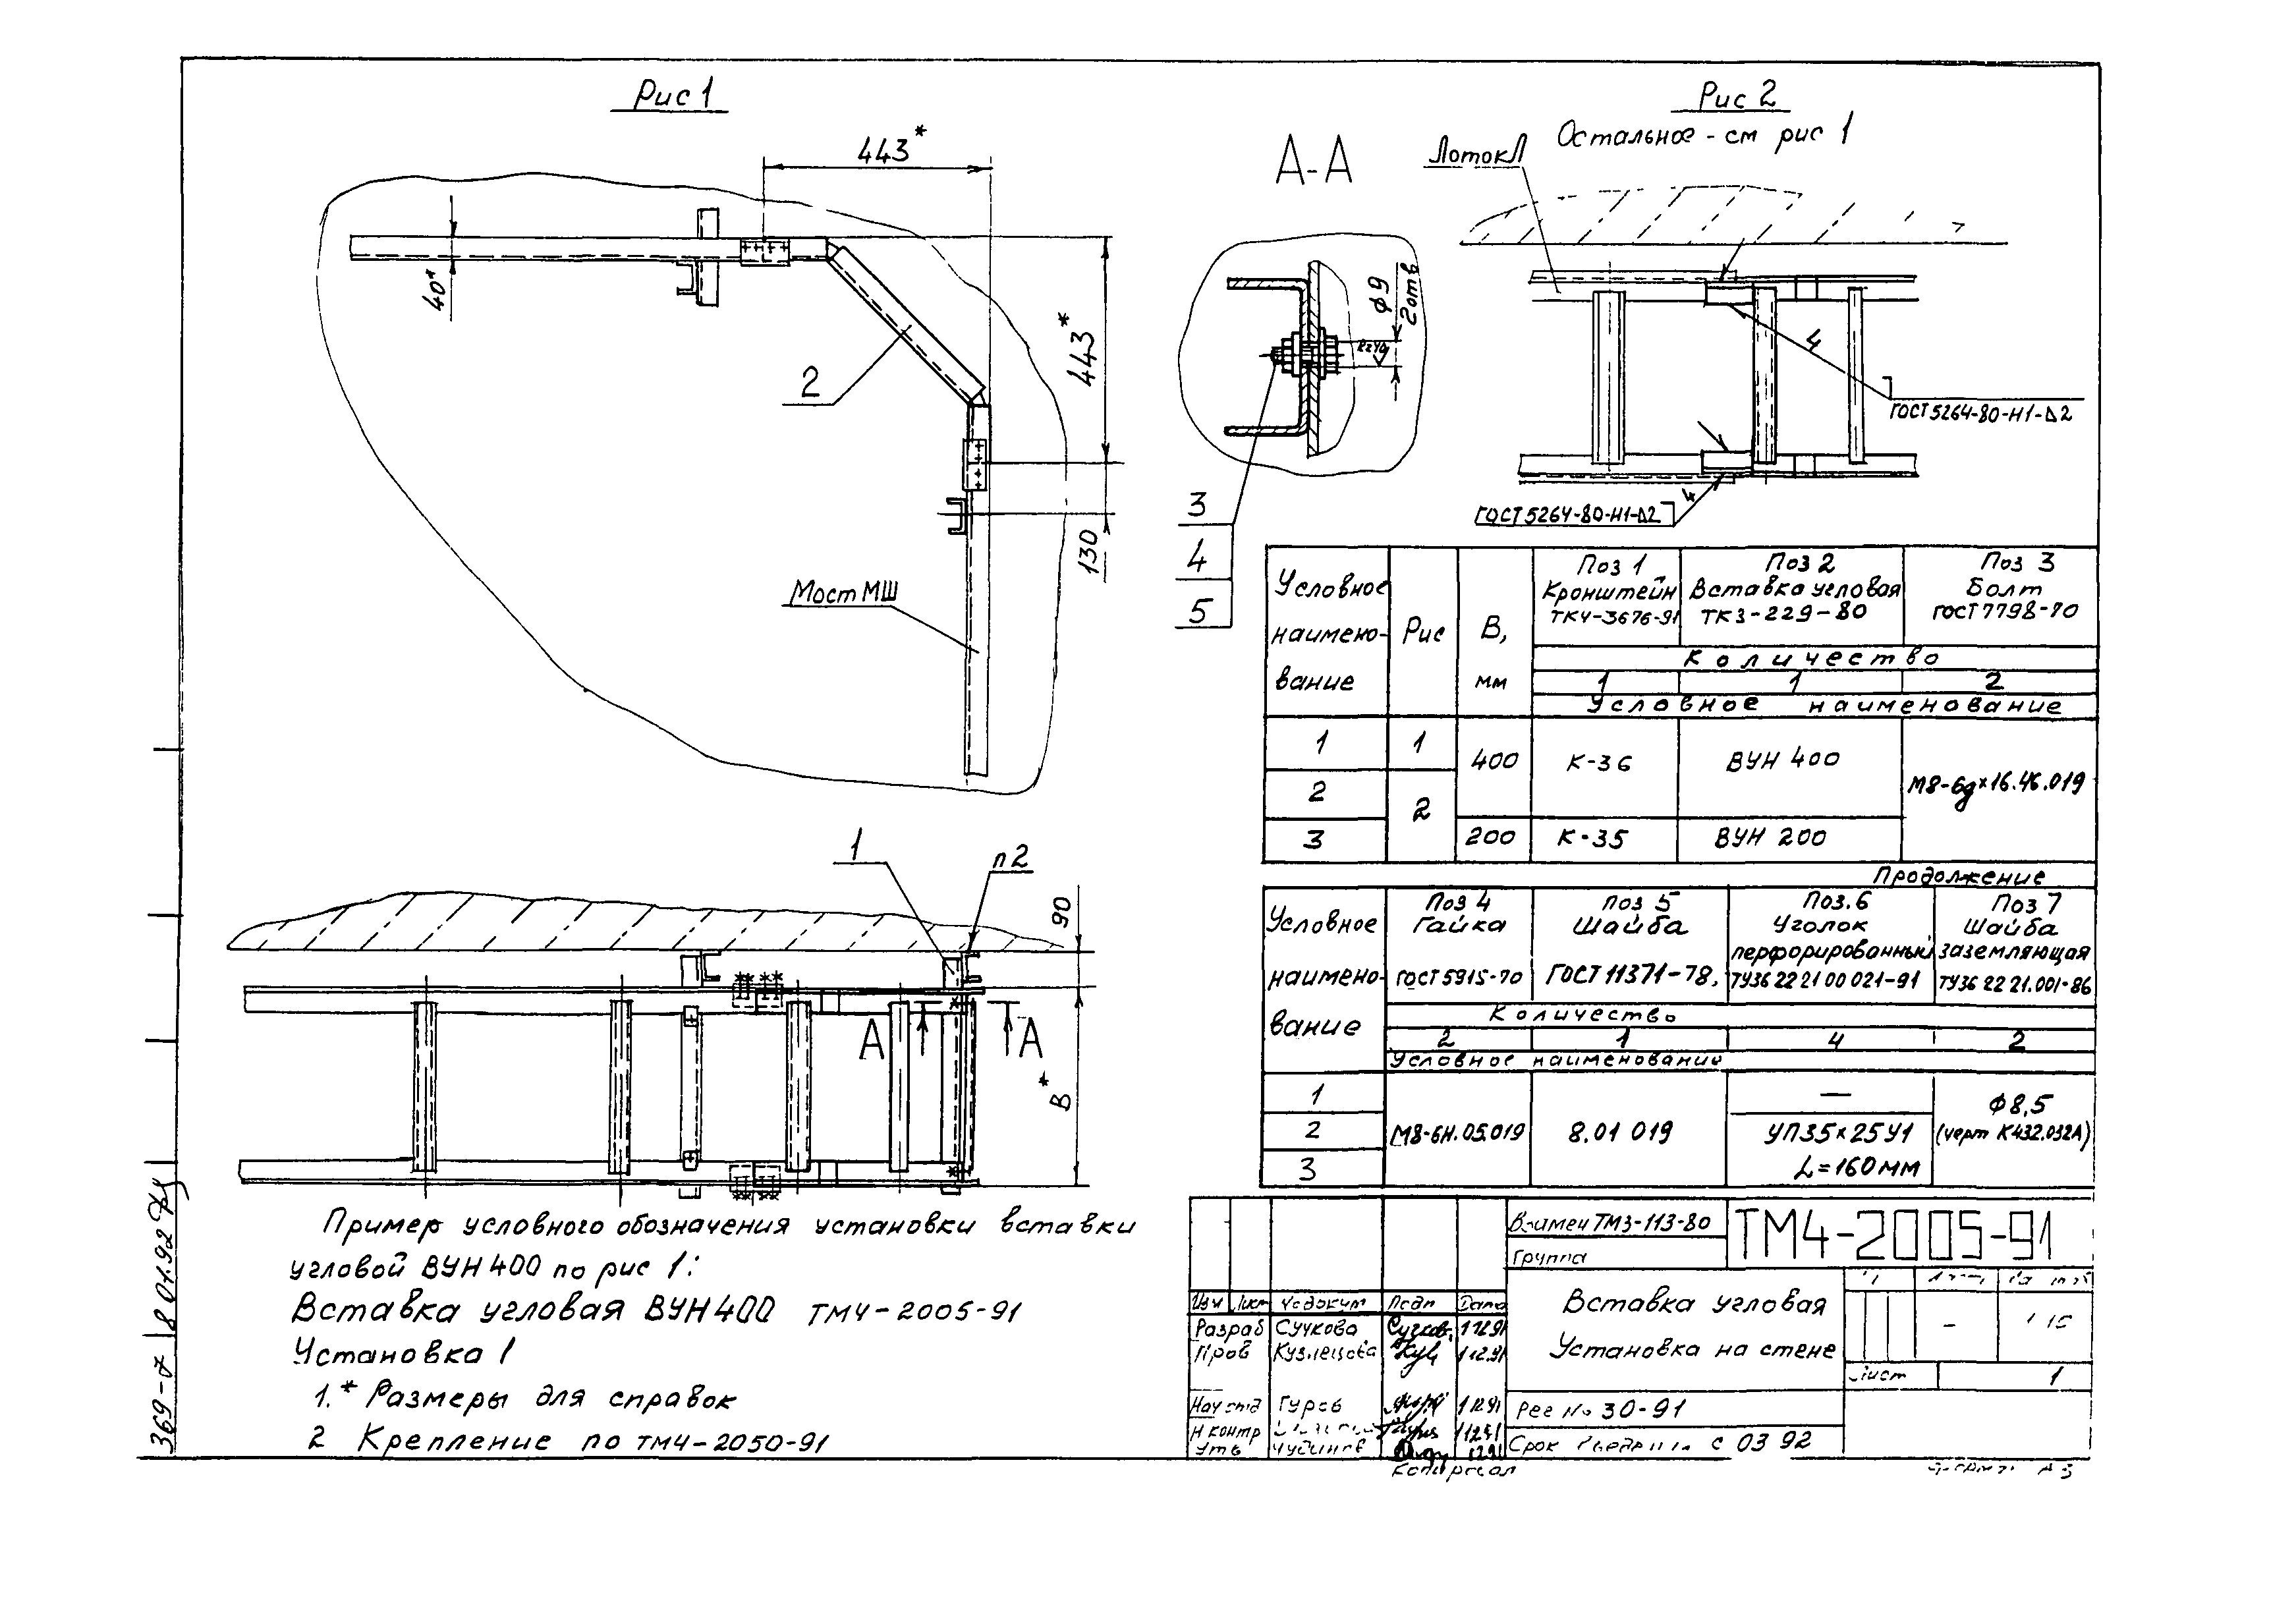 Рис 1
443*
40*
2
443*
130
Мост МШ
А-А
ф9
2отв
3
4
5
Рис 2
Остальное - см рис 1
Лоток Л
4
ГОСТ 5264-80-Н1-Δ2
4
ГОСТ 5264-80-Н1-Δ2
1
п2
90
А
А
В*
Условное наимено-вание
Рис
В, мм
Поз 1 Кронштейн ТК4-3676-91
Поз 2 Вставка угловая ТК3-229-80
Поз 3 Болт ГОСТ 7798-70
Количество
1 1 2
Условное наименование
1 1 400 К-36 ВУН 400 М8-6gх16.46.019
2 2
3 200 К-35 ВУН 200
Продолжение
Условное наимено-вание
Поз 4 Гайка ГОСТ 5915-70
Поз 5 Шайба ГОСТ 11371-78,
Поз.6 Уголок перфорированный ТУ36 22 21 00 021-91
Поз 7 Шайба заземляющая ТУ36 22 21.001-86
Количество
2 1 4 2
Условное наименование
1 — ф8,5
2 М8-6Н.05.019 8.01 019 УП35х25У1 (черт К432.032А)
3 L=160 мм
Пример условного обозначения установки вставки
угловой ВУН 400 по рис 1:
Вставка угловая ВУН 400 ТМ4-2005-91
Установка 1
1.* Размеры для справок
2 Крепление по ТМ4-2050-91
369-7
8 01.92
Взамен ТМ3-113-80
ТМ4-2005-91
Группа
Изм Лист № докум Подп Дата
Разраб Сучкова
Пров Кузнецова
Нач отд Гуров
Н контр
Утв Чудинов
Вставка угловая
Установка на стене
—
Лист 1
Рег № 30-91
Срок введения с 03 92
Копировал
Формат А3